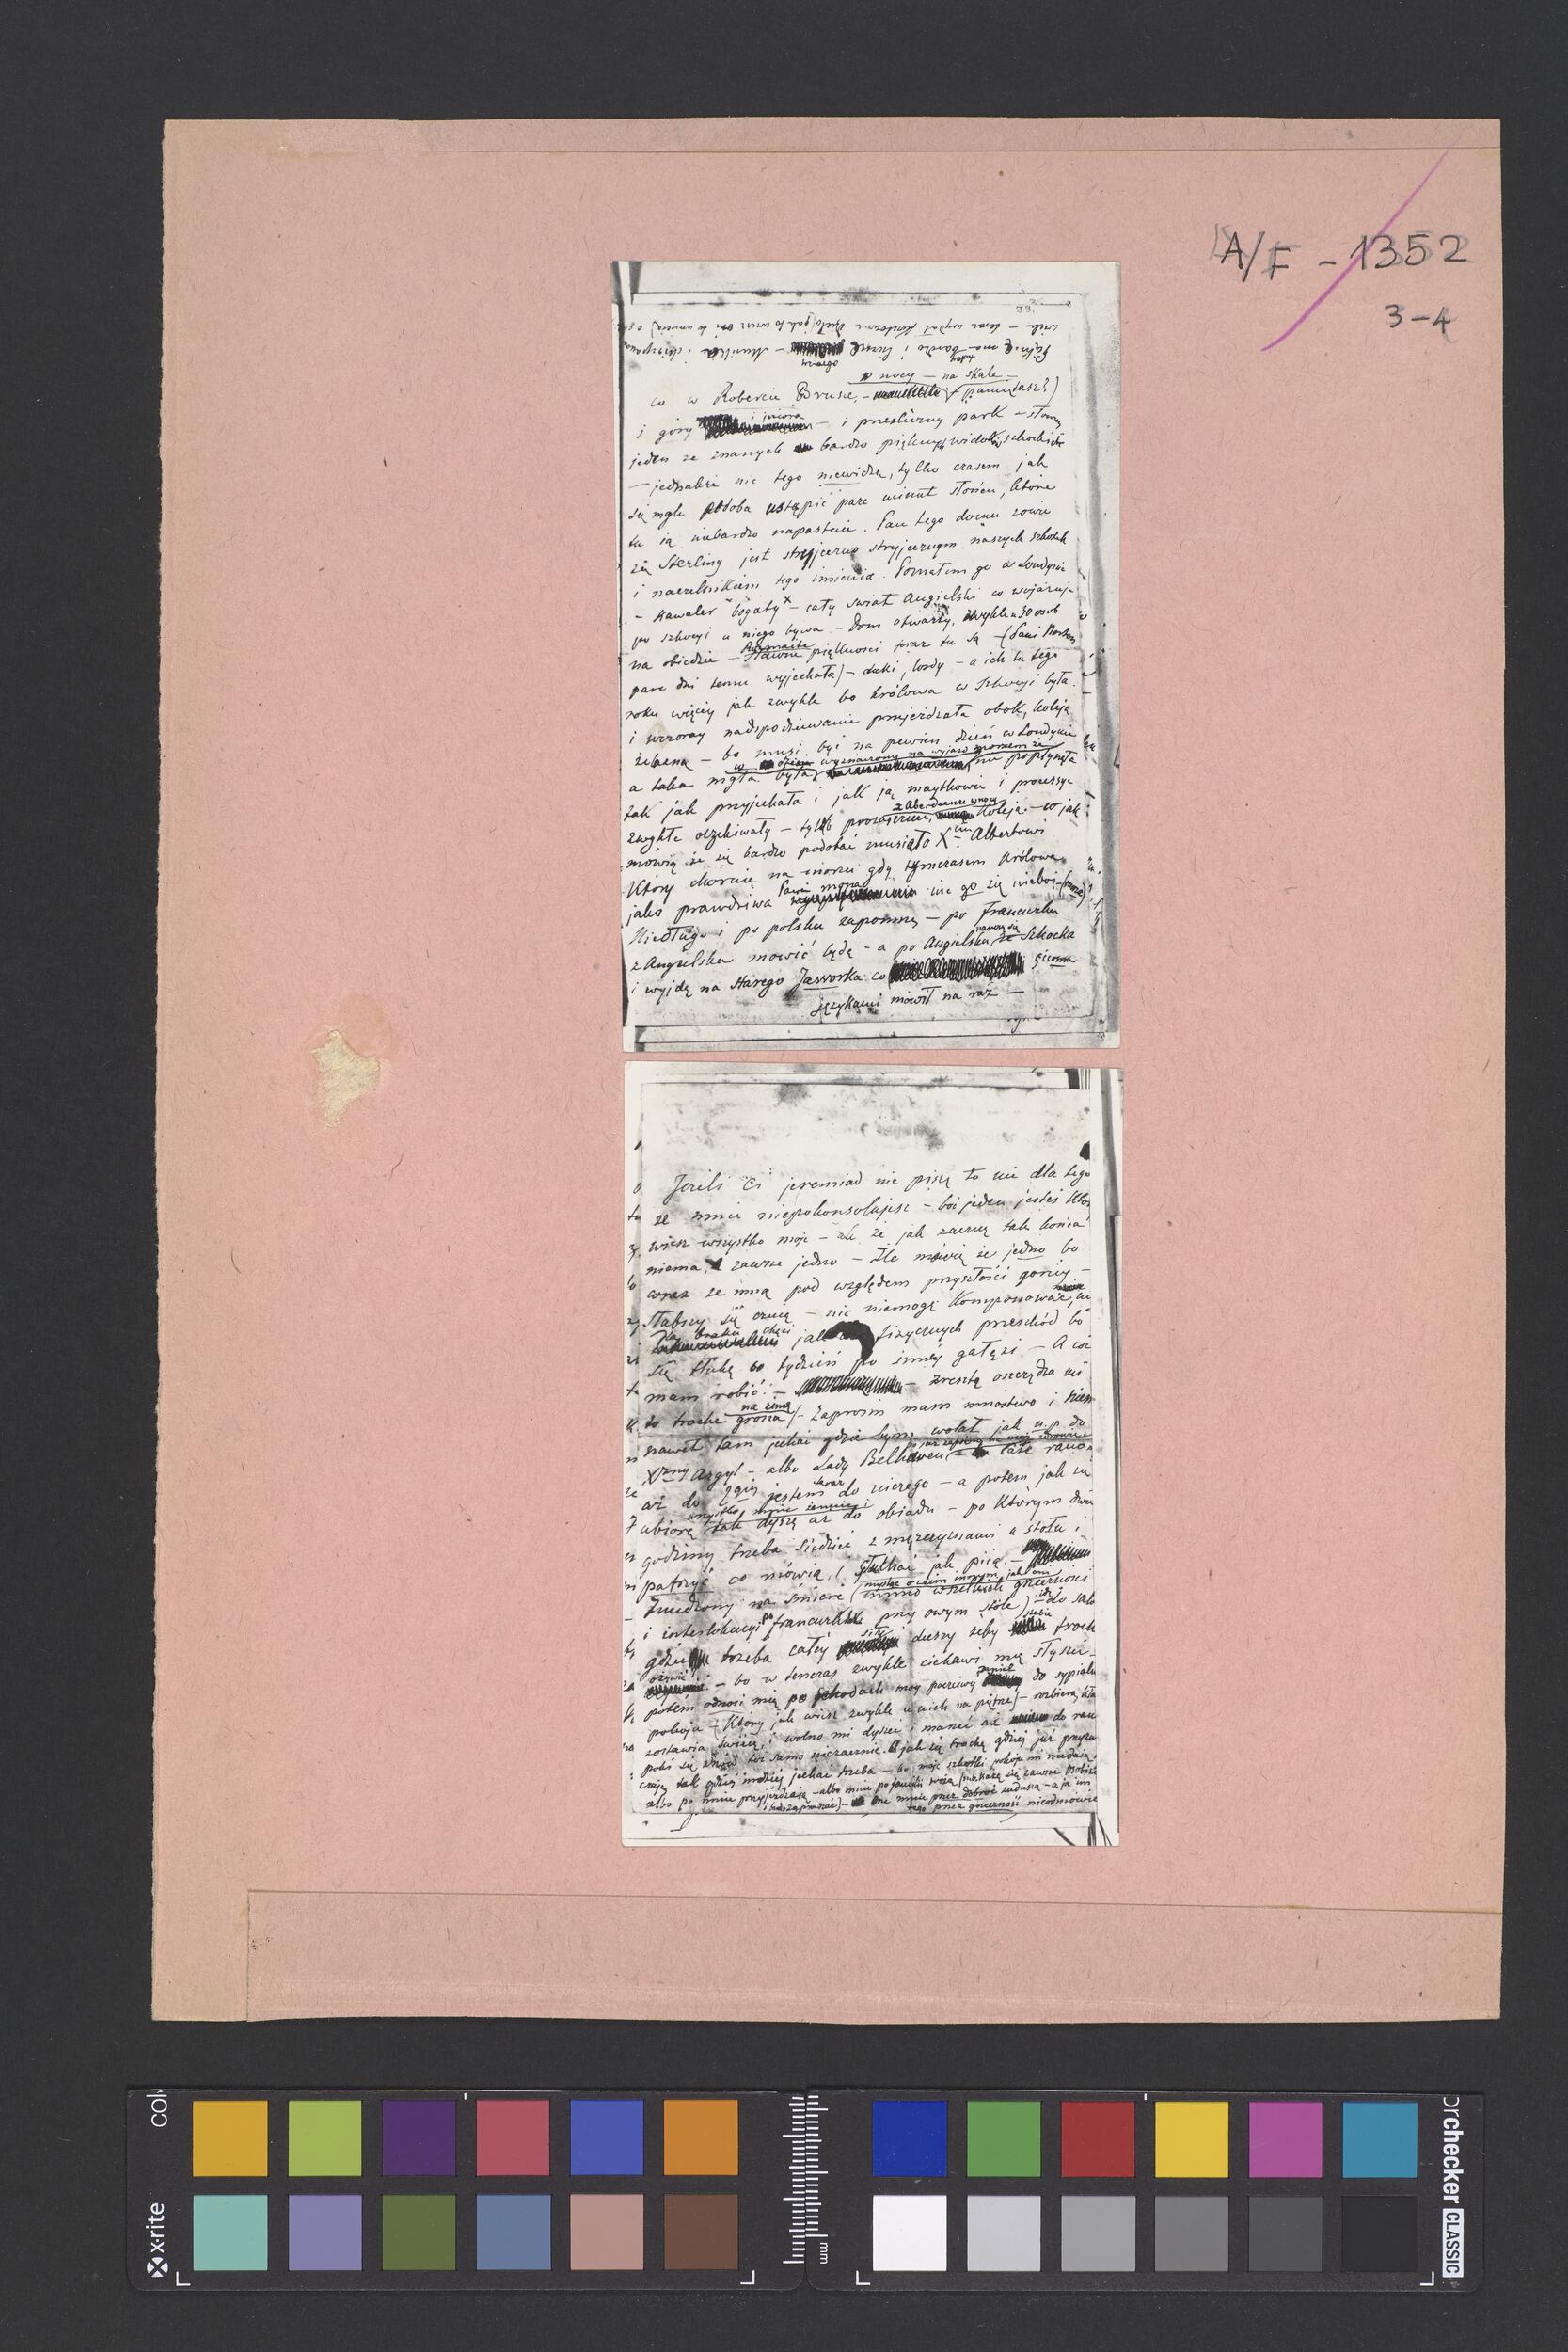 A/F - 1352
3-4
33.
w nocy — na skale —
co w Robercie Brusie, — (pamiętasz?)
i góry i jeziora — i prześliczny park — słowem
jeden ze znanych bardzo pięknych widoków szkockich
— jednakże nic tego niewidzę, tylko czasem jak
się mgle podoba ustąpić parę minut słońcu, które
tu ją niebardzo napastuie. Pan tego domu zowie
się Sterling jest stryjeczno stryjecznym naszych szkotek
i naczelnikiem tego imienia. Poznałem go w Londynie
— Kawaler "bogaty" — cały świat Angielski co wojażuje
po szkocyi u niego bywa — Dom otwarty, zwykle 30 osób
na obiedzie — Rozmaite piękności teraz tu są — (Pani Norton
parę dni temu wyjechała) — duki, lordy — a ich tu tego
roku więcéj jak zwykle bo królowa w Szkocyi była.
i wczoraj nadspodziewanie przejeżdżała obok, koleją
żelazną — bo musi być na pewien dzień w Londynie
w dzień wyznaczony na wyjazd morzem że
a taka mgła była, nie popłynęła
tak jak przyjechała i jak ją maytkowie i processye
zwykłe oczekiwały — tylko prozaicznie, z Aberdeenu w nocy koleją. — co jak
mówią że się bardzo podobać musiało X-ciu Albertowi
który choruie na morzu gdy tymczasem królowa
jako prawdziwa Pani morza nie go się nieboi — (morze)
Niedługo i po polsku zapomnę — po francuzku
z Angielska mowić będę — a po Angielsku nauczę się ze Szkocka
i wyjdę na starego Jaworka co pięcioma
językami mówił na raz —
Jeżeli Ci jeremiad nie piszę to nie dla tego
że mnie niepokonsolujesz — boś jeden jesteś który
wiesz wszystko moje — ale że jak zacznę tak końca
niema, i zawsze jedno — Źle mówię że jedno bo
coraz ze mną pod względem przyszłości gorzéj —
Słabszy się czuię — nic niemogę Komponować, nie
dla braku chęci jak fizycznych przeszkód bo
się tłukę co tydzień po innéj gałęzi — A coż
mam robić! — zresztą oszczędza mi
to trochę grosza na zimę / — Zaprosin mam mnóstwo i niem
nawet tam jechać gdzie bym wolał jak n.p. do
Xżny Argyl — albo Lady Belhaven — Całe rano
aż do 2giéj jestem teraz do niczego — a potem jak się
ubiorę wszystko mnie żenuie i tak dyszę aż do obiadu — po którym dwie
godziny trzeba siedzieć z mężczyznami u stołu i
patrzyć co mówią, i słuchać jak piią. —
Znudzony na śmierć (myśląc o czém innym jak oni mimo wszelkich grzeczności
i interlokucyi po francuzku przy owym stole) — idę do salonu
gdzie trzeba całéj siły duszy żeby siebie trochę
ożywić — bo w tenczas zwykle ciekawi mię słyszeć —
potem odnosi mię po schodach moy poczciwy Daniel do sypialnego
pokoju — (Który jak wiesz zwykle u nich na piętrze) — rozbiera, kła
zostawia świecę, i wolno mi dyszeć i marzyć aż do rana
póki się znowu toż samo niezacznie. A jak się trochę gdziéj już przyzw
czaję tak gdziéj indziéj jechać trzeba — bo moje szkotki pokoju mi niedają,
albo po mnie przyjeżdżają — albo mnie po familii wożą (NB. każą się zawsze osobiście
i każą prosić) — One mnie przez dobroć zaduszą — a ja im
tego przez grzeczność nieodmówię